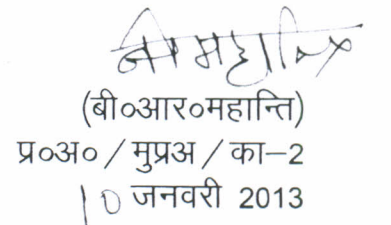 (बी०आर०महान्ति)
प्र०अ० / मुप्रअ / का–2
10 जनवरी 2013